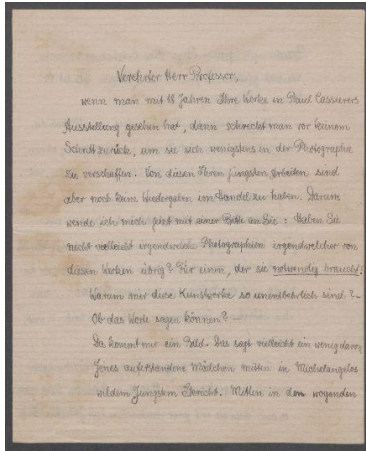 Verehrter Herr Professor,
wenn man mit 18 Jahren Ihre Werke in Paul Cassierers
Ausstellung gesehen hat, dann schreckt man vor keinem
Schritt zurück, um sie sich wenigstens in der Photographie
zu verschaffen. Von diesen Ihren jüngsten Arbeiten sind
aber noch keine Wiedergaben im Handel zu haben. Darum
wende ich mich jetzt mit einer Bitte an Sie: Haben Sie
nicht vielleicht irgendwelche Photographien irgendwelcher von
diesen Werken übrig? Für einen, der sie notwendig braucht!
Warum mir diese Kunstwerke so unentbehrlich sind? –
Ob das Worte sagen können? –
Da kommt mir ein Bild. Das sagt vielleicht ein wenig davon
Jenes auferstandene Mädchen mitten in Michelangelos
wildem Jüngsten Gericht. Mitten in dem wogenden